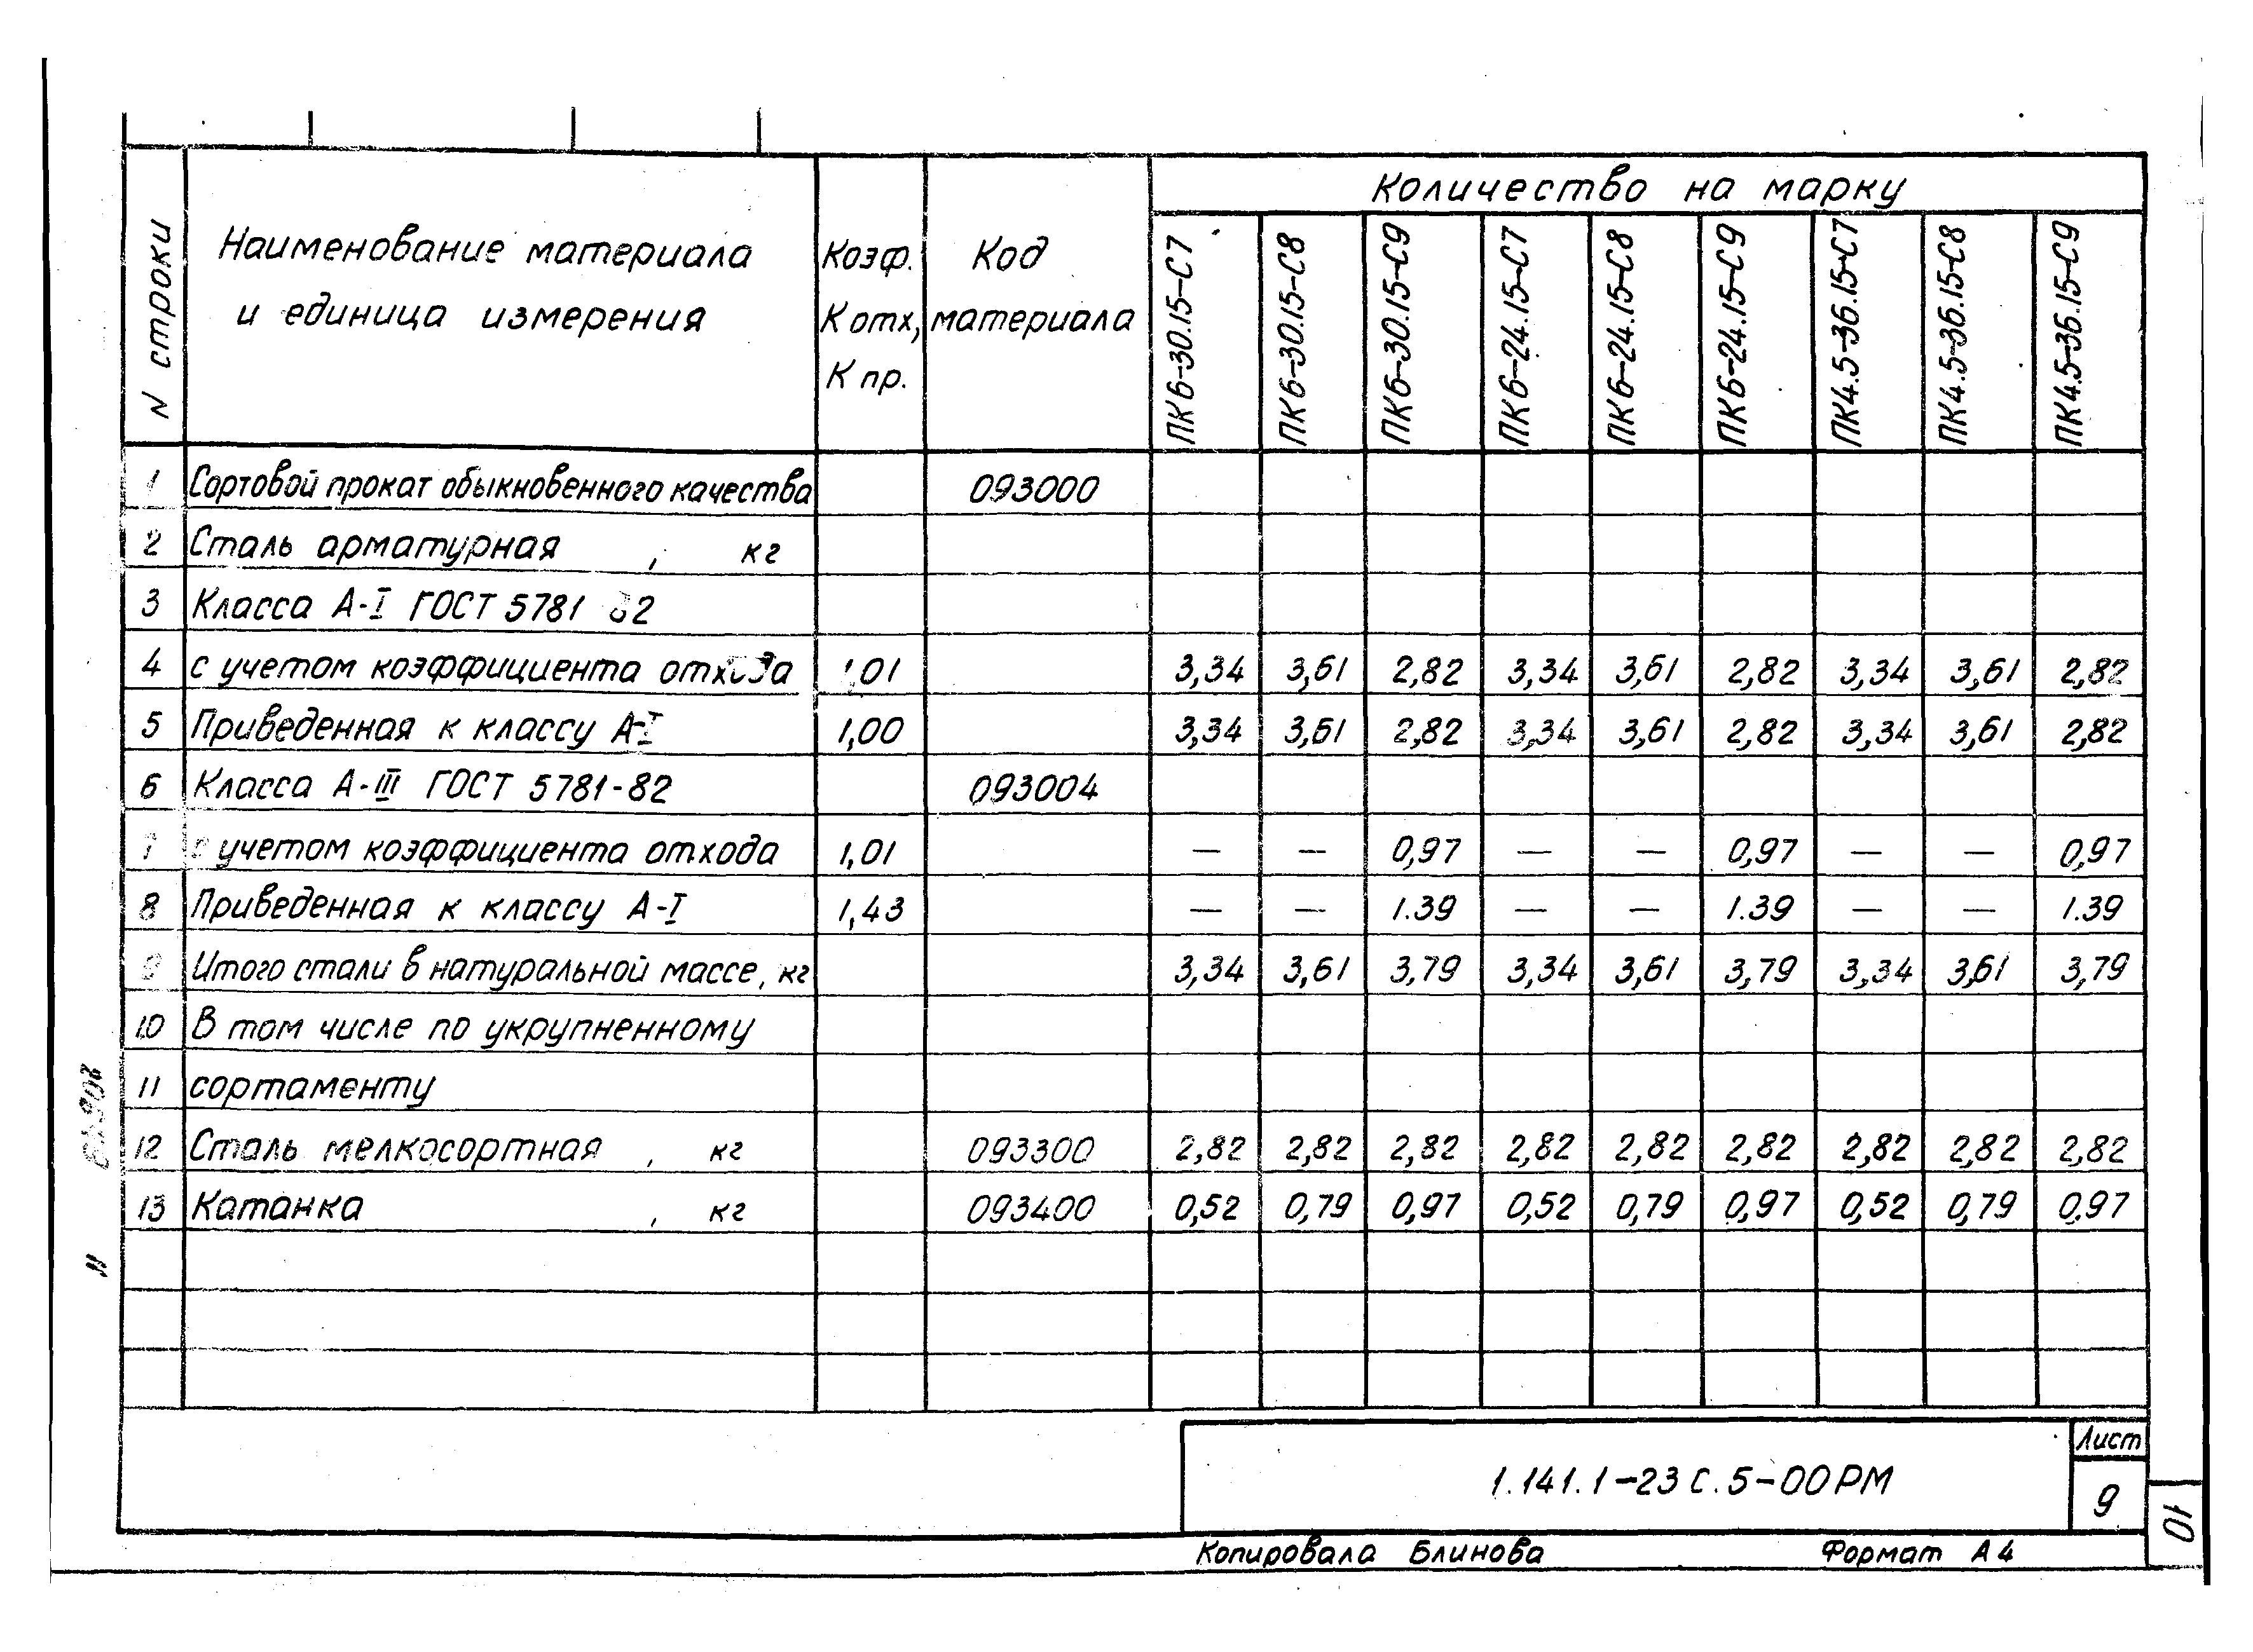 Количество на марку
N строки
Наименование материала
и единица измерения
Коэф.
К отх,
К пр.
Код
материала
ПК6-30.15-С7
ПК6-30.15-С8
ПК6-30.15-С9
ПК6-24.15-С7
ПК6-24.15-С8
ПК6-24.15-С9
ПК4.5-36.15-С7
ПК4.5-36.15-С8
ПК4.5-36.15-С9
1 Сортовой прокат обыкновенного качества 093000
2 Сталь арматурная , кг
3 Класса А-I ГОСТ 5781 82
4 с учетом коэффициента отхода 1,01 3,34 3,61 2,82 3,34 3,61 2,82 3,34 3,61 2,82
5 Приведенная к классу А-I 1,00 3,34 3,61 2,82 3,34 3,61 2,82 3,34 3,61 2,82
6 Класса А-III ГОСТ 5781-82 093004
7 с учетом коэффициента отхода 1,01 — — 0,97 — — 0,97 — — 0,97
8 Приведенная к классу А-I 1,43 — — 1.39 — — 1.39 — — 1.39
9 Итого стали в натуральной массе, кг 3,34 3,61 3,79 3,34 3,61 3,79 3,34 3,61 3,79
10 В том числе по укрупненному
11 сортаменту
12 Сталь мелкосортная , кг 093300 2,82 2,82 2,82 2,82 2,82 2,82 2,82 2,82 2,82
13 Катанка , кг 093400 0,52 0,79 0,97 0,52 0,79 0,97 0,52 0,79 0,97
1.141.1-23 С.5-00РМ
Лист
9
10
Копировала Блинова Формат А4